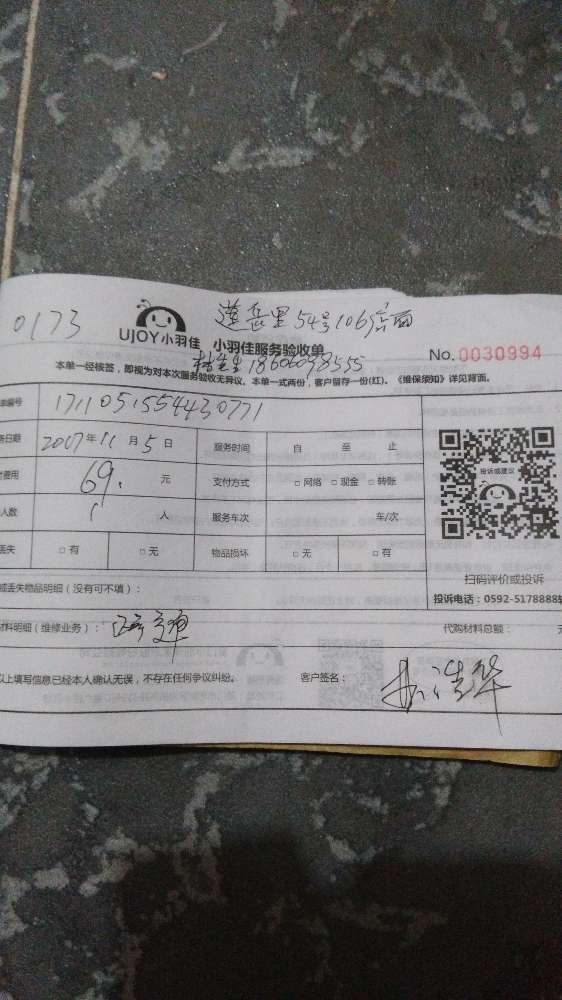 0173
54号106店面
UJOY小羽佳 小羽佳服务验收单
No. 0030994
林先生 18606098555
本单一经核签，即视为对本次服务验收无异议。本单一式两份，客户留存一份(红)。《维保须知》详见背面。
编号 17110515544430771
务日期 2017年 11月 5日 服务时间 自 至 止
费用 69. 元 支付方式 □网络 □现金 □转账
人数 1 人 服务车次 车/次
丢失 □有 □无 物品损坏 □无 □有
投诉或建议
扫码评价或投诉
投诉电话：0592-5178888
或丢失物品明细（没有可不填）：
材料明细（维修业务）： 代购材料总额：
以上填写信息已经本人确认无误，不存在任何争议纠纷。 客户签名：